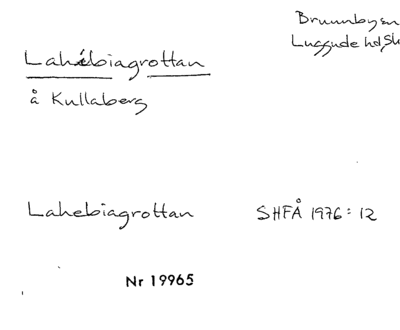 Brunnby sn
Luggude hd, Sk
Lahébiagrottan
å Kullaberg
Lahebiagrottan
SHFÅ 1976:12
Nr 19965